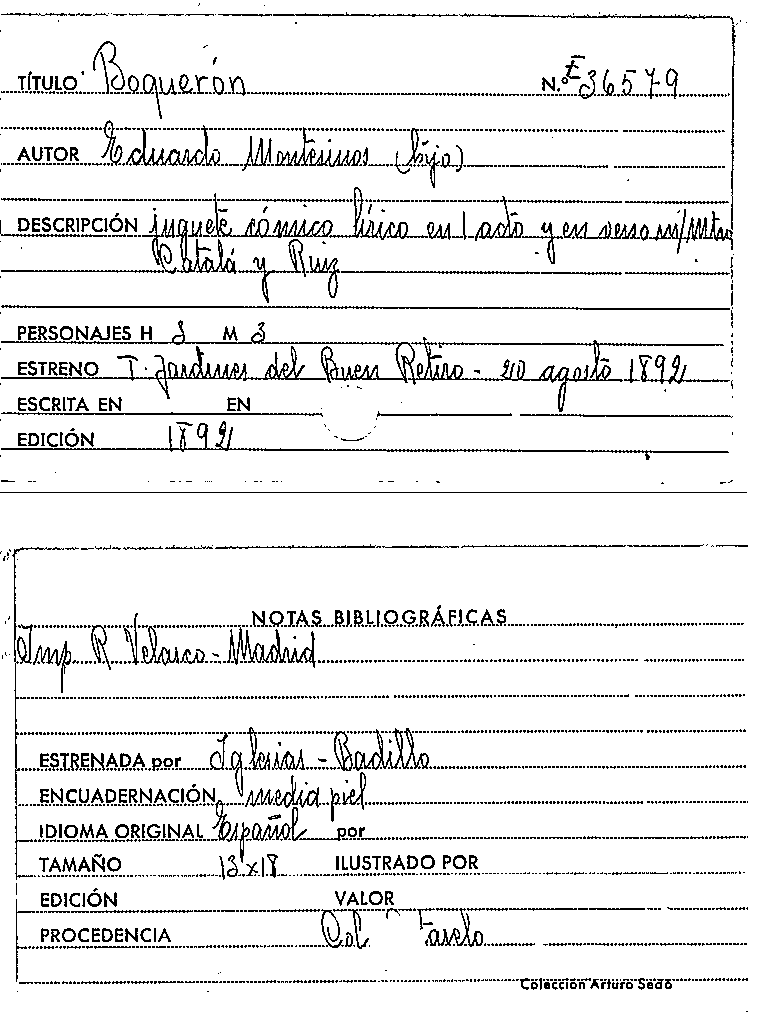 TÍTULO Boquerón N.º E 36579
AUTOR Eduardo Montesinos (hijo)
DESCRIPCIÓN juguete cómico lírico en 1 acto y en verso m/Mtro
Catalá y Ruiz
PERSONAJES H 3 M 3
ESTRENO T. Jardines del Buen Retiro - 20 agosto 1892
ESCRITA EN EN
EDICIÓN 1892
NOTAS BIBLIOGRÁFICAS
Imp R Velasco - Madrid
ESTRENADA por Iglesias - Badillo
ENCUADERNACIÓN media piel
IDIOMA ORIGINAL Español por
TAMAÑO 13x18 ILUSTRADO POR
EDICIÓN VALOR
PROCEDENCIA Col
Colección Arturo Sedó